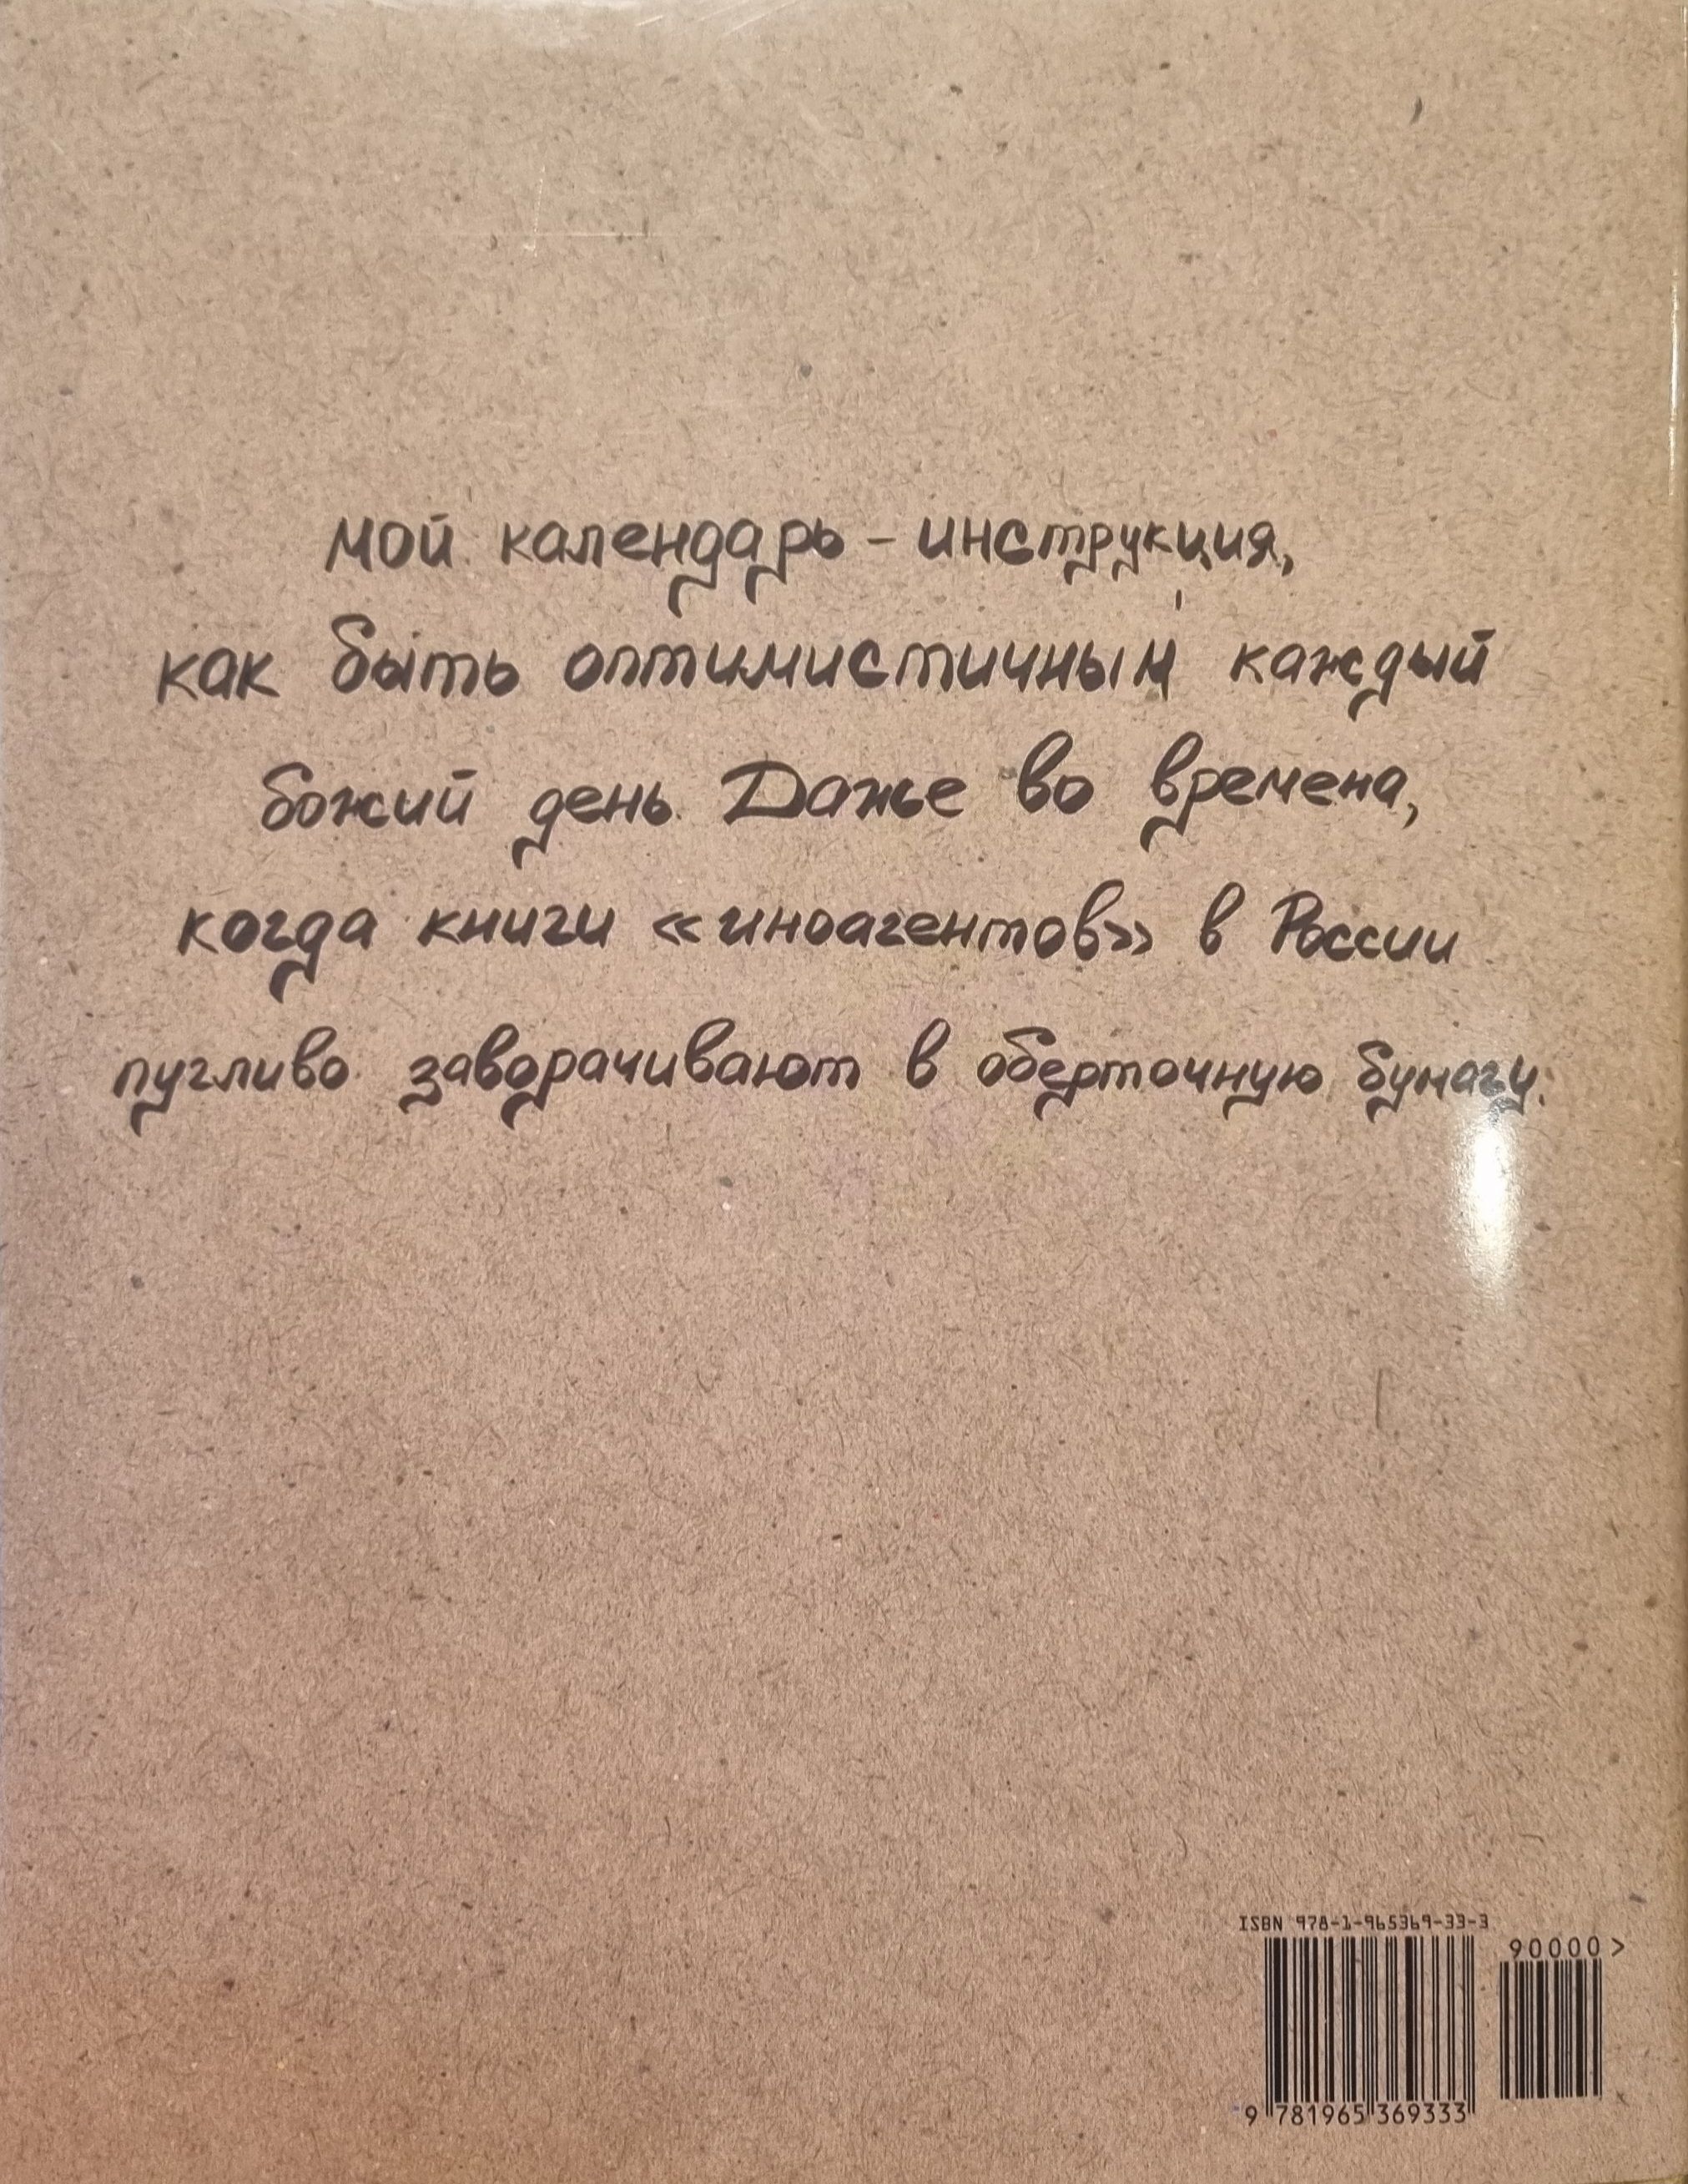 мой календарь – инструкция,
как быть оптимистичным каждый
божий день. Даже во времена,
когда книги «иноагентов» в России
пугливо заворачивают в оберточную бумагу.
ISBN 978-1-965369-33-3
90000>
9 781965 369333